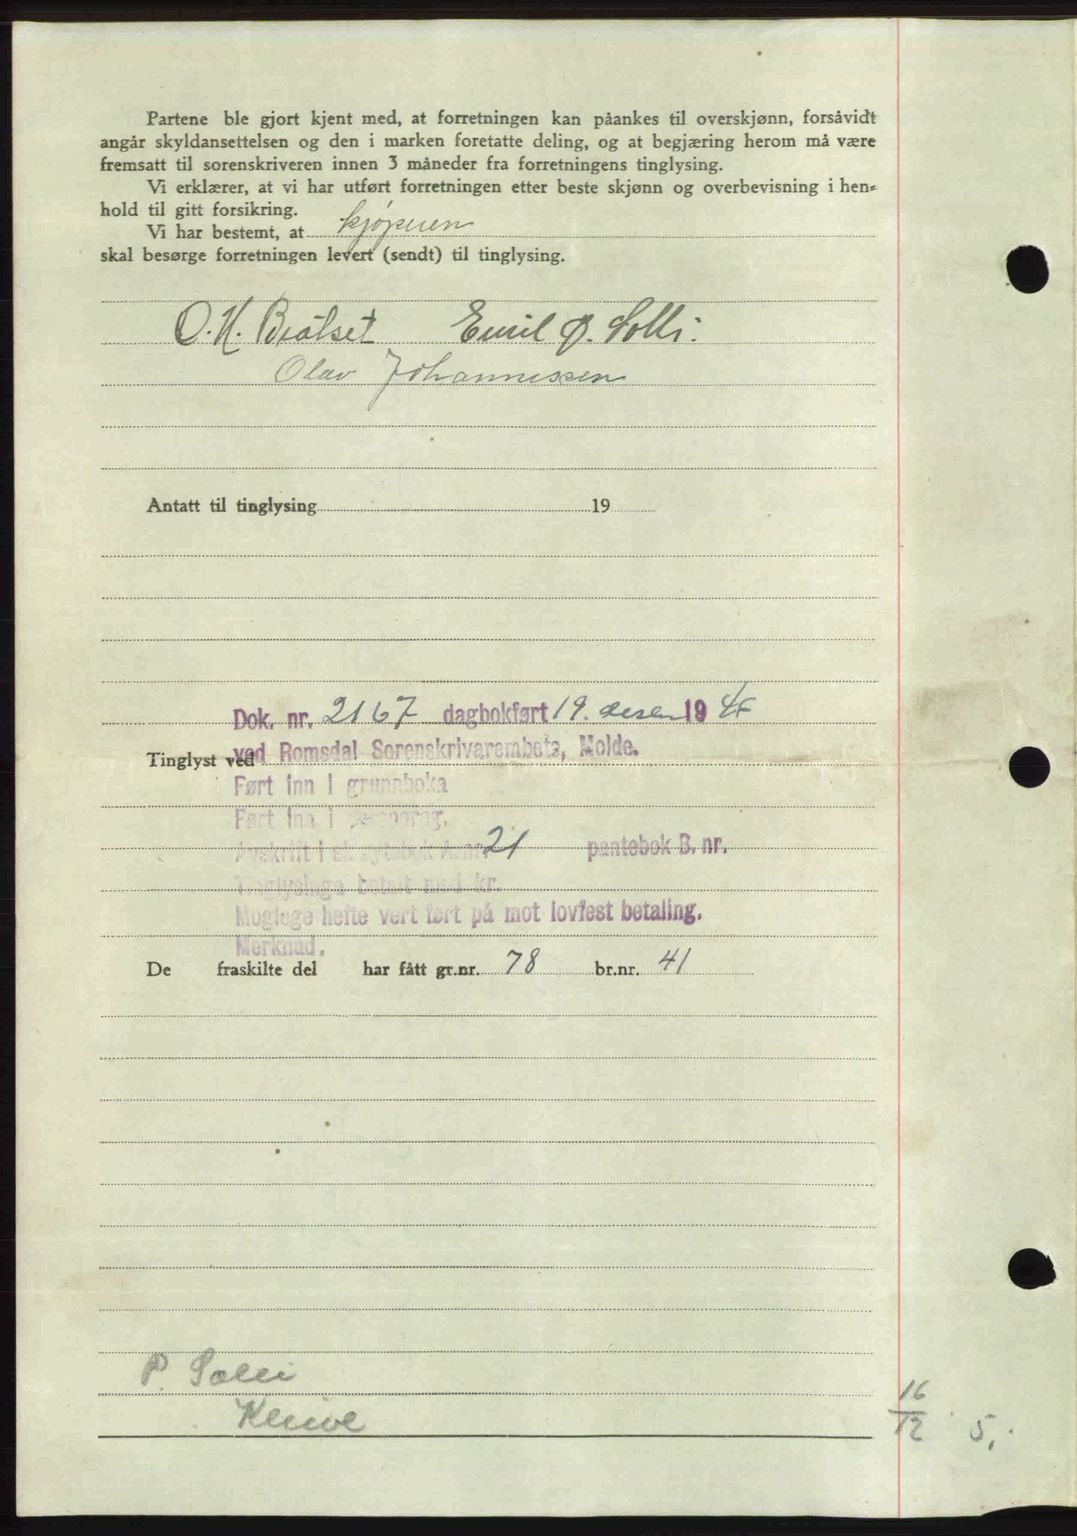 Partene ble gjort kjent med, at forretningen kan påankes til overskjønn, forsåvidt
angår skyldansettelsen og den i marken foretatte deling, og at begjæring herom må være
fremsatt til sorenskriveren innen 3 måneder fra forretningens tinglysing.
Vi erklærer, at vi har utført forretningen etter beste skjønn og overbevisning i hen-
hold til gitt forsikring.
Vi har bestemt, at kjøperen
skal besørge forretningen levert (sendt) til tinglysing.
O. K. Bråtset Emil P. Solli.
Olav Johannessen
Antatt til tinglysing 19
Dok. nr. 2167 dagbokført 19. desem 1946
Tinglyst ved
ved Romsdal Sorenskrivarembete, Molde.
Ført inn i grunnboka
Ført inn i
Avskrift i 21 pantebok B. nr.
Tinglysinga betalt med kr.
Moglege hefte vert ført på mot lovfest betaling.
Merknad.
De fraskilte del har fått gr.nr. 78 br.nr. 41
P. Solli
Kleive
16
12 5,